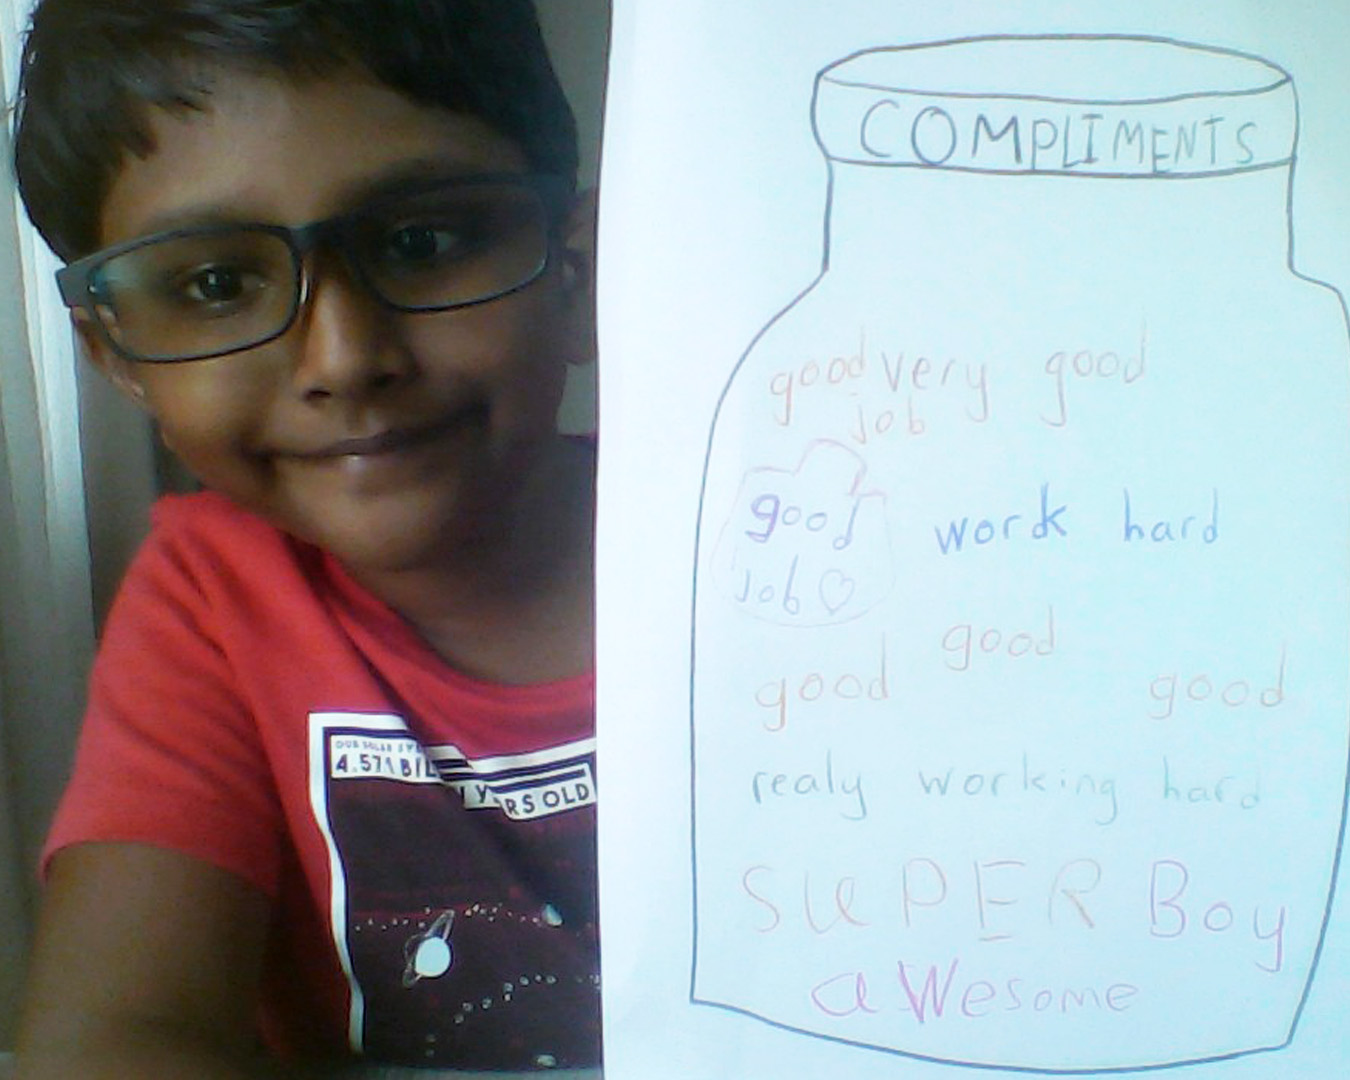 COMPLIMENTS
good very good
job
good work hard
job
good
good good
realy working hard
SUPER Boy
aWesome
OUR SOLAR SYS
4.571 BIL
Y RS OLD